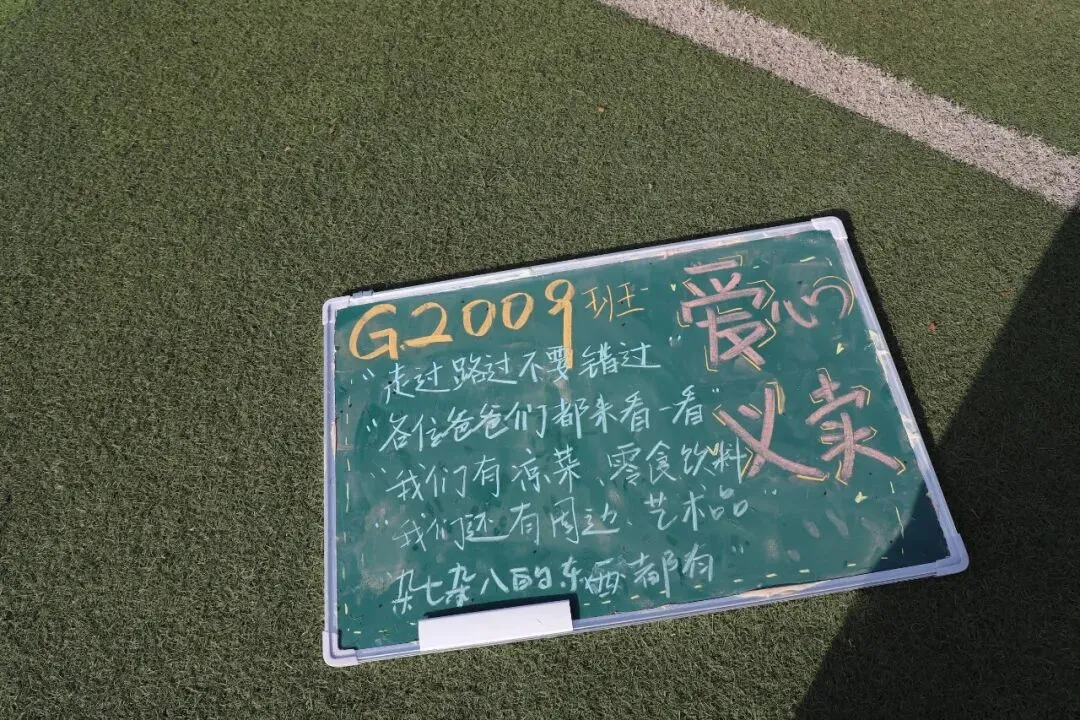 G.2009班
爱心
义卖
"走过路过不要错过"
"各位爸爸们都来看一看"
"我们有凉菜、零食饮料
"我们还有周边、艺术品"
杂七杂八的东西都有"